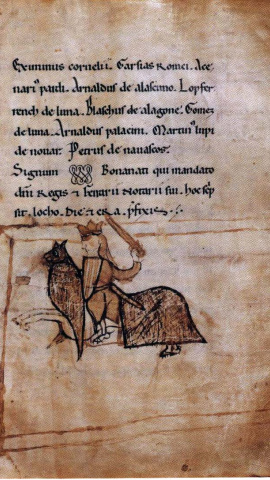 Eximinus cornelii. Garsias Romei. Ace
narꝰ pauli. Arnaldus de alascano. Lopfer
rench de luna. Blaschus de alagone. Gomez
de luna. Arnaldus palacini. Martinꝰ lupi
de nouar. Petrus de nauascos.
Signum Bonanati qui mandato
dñi Regis ⁊ ferrarii Notarii sui. hoc scp
sit. locho. Die ⁊ era. p̃fixis.